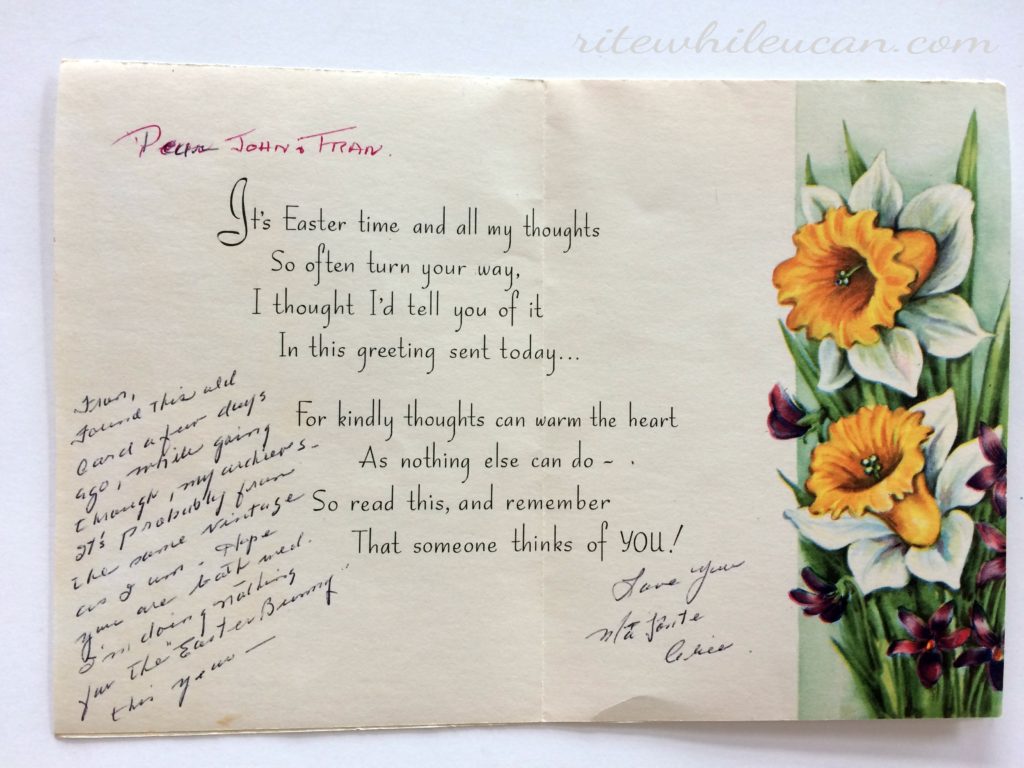 ritewhileucan.com
Dear JOHN & FRAN.
It's Easter time and all my thoughts
So often turn your way,
I thought I'd tell you of it
In this greeting sent today...
For kindly thoughts can warm the heart
As nothing else can do –
So read this, and remember
That someone thinks of YOU!
Fran,
Found this old
card a few days
ago, while going
through, my archieves -
It's probably from
the same vintage
as I am - Hope
you are both well.
I'm doing nothing
for the "Easter Bunny"
this year —
Love you
Ma Tante
Alice